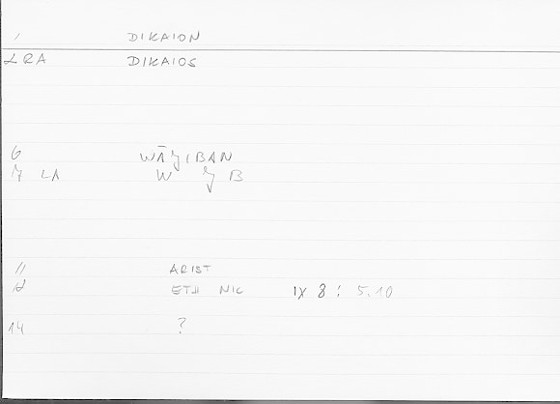 1 DIKAION
LRA DIKAIOS
6 WĀJIBAN
7 LA W J B
11 ARIST
12 ETH NIC IX 8 : 5.10
14 ?